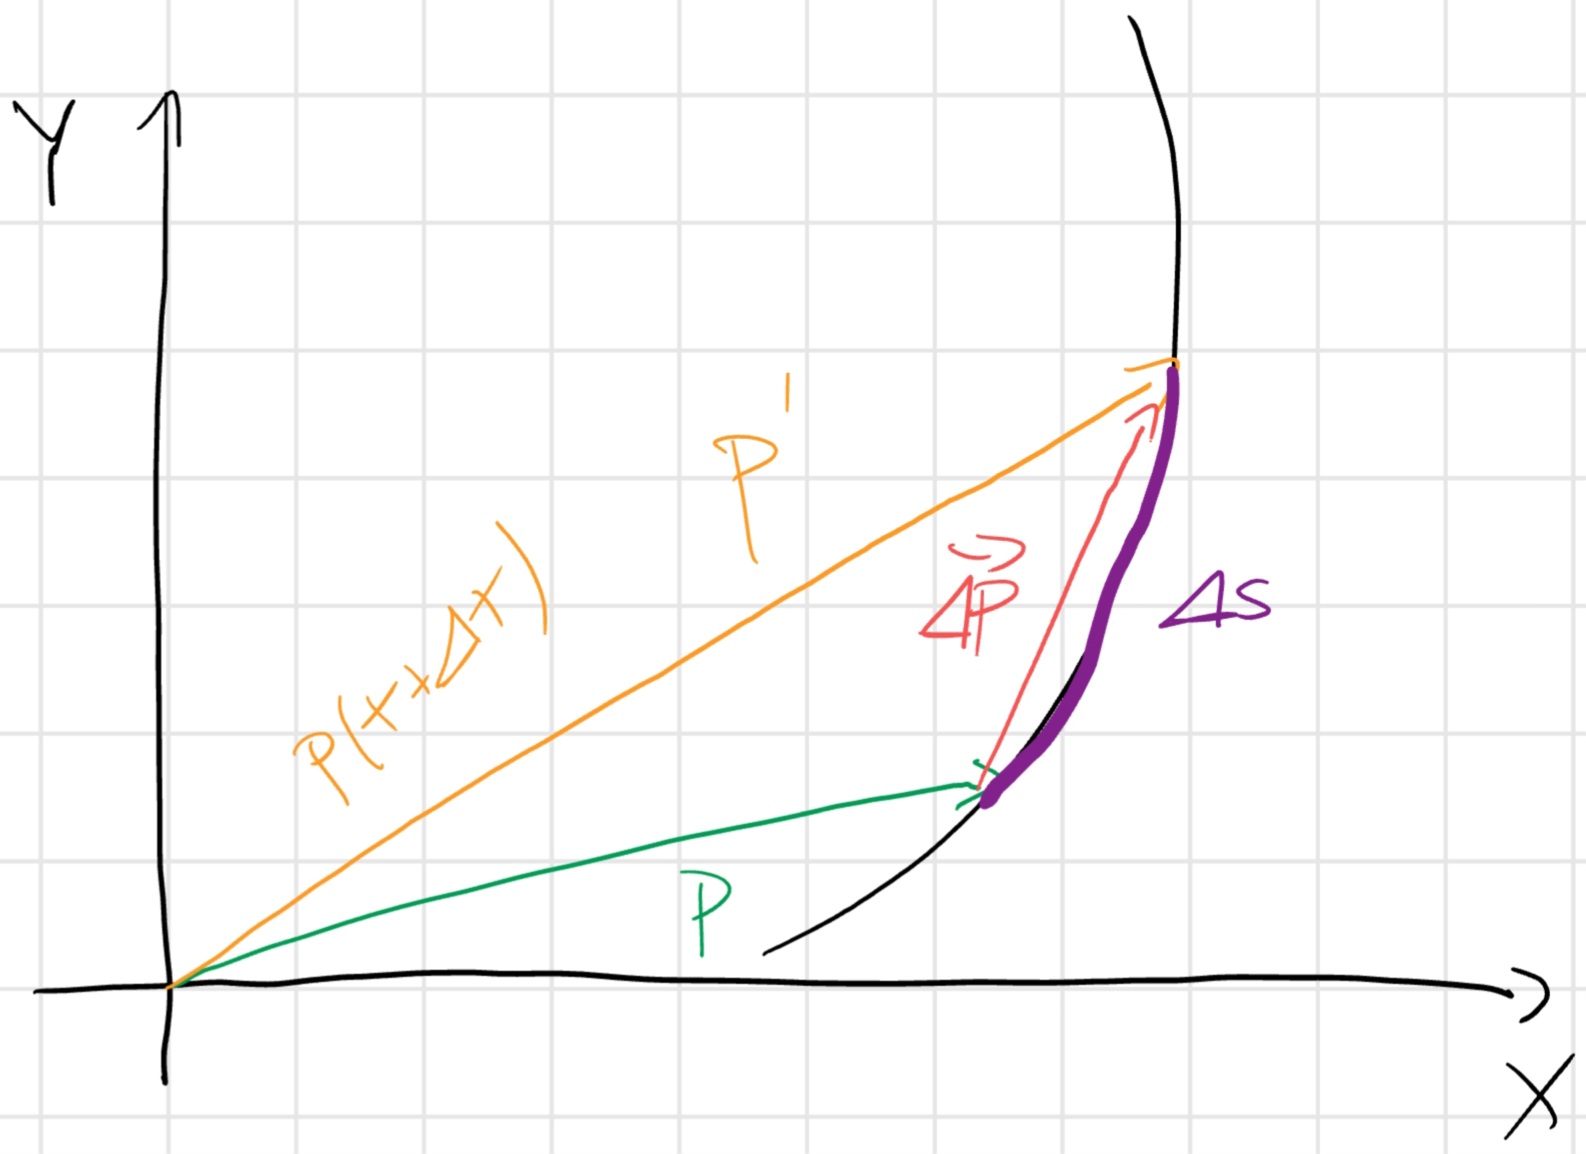 Y
P'
P(x+Δx)
ΔP⃗
ΔS
P
X